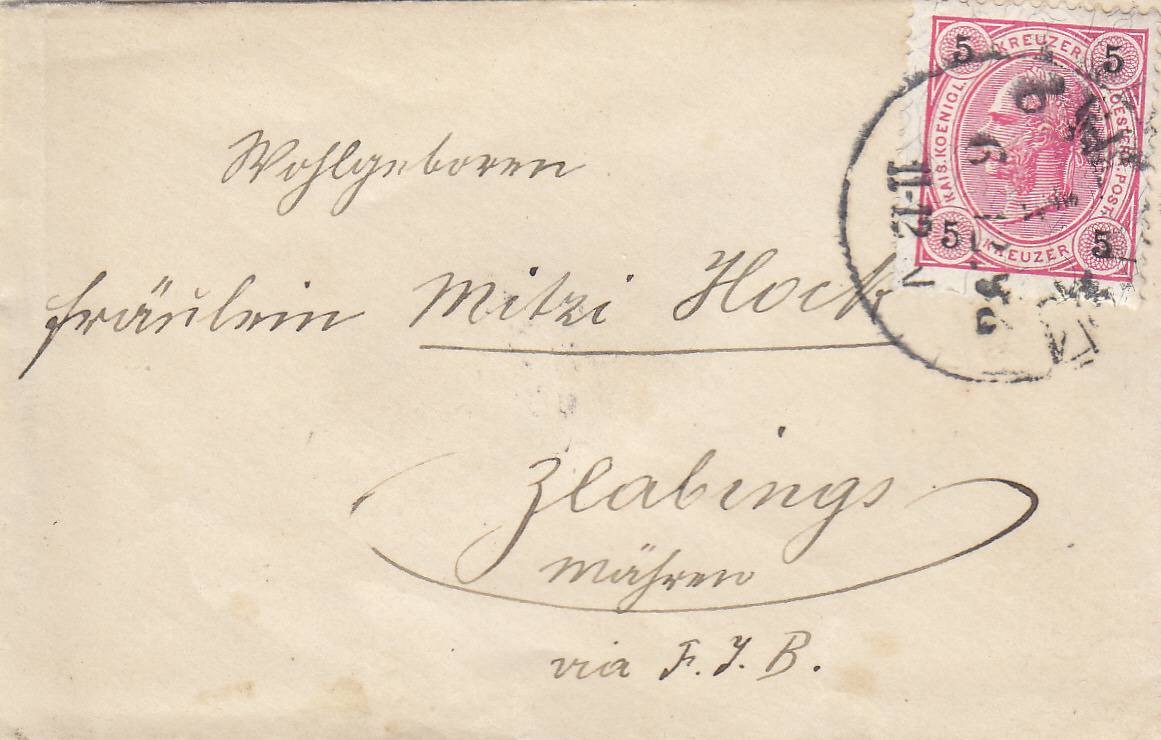 Wohlgeboren
Fräulein Mitzi Hock
Zlabings
Mähren
via F. J. B.
5 KREUZER 5
KAIS. KOENIGL. OESTERR. POST.
5 KREUZER 5
11-12